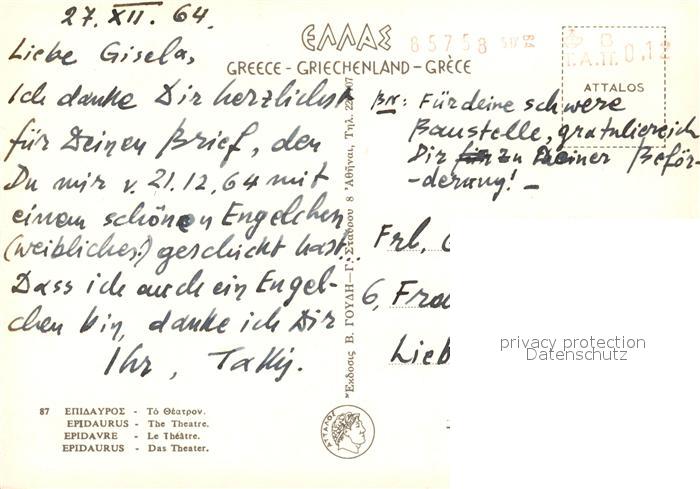 27. XII. 64.
Liebe Gisela,
Ich danke Dir herzlichst
für Deinen Brief, den
Du mir v. 21.12.64 mit
einem schönen Engelchen
(weibliches!) geschickt hast..
Dass ich auch ein Engel-
chen bin, danke ich Dir
Ihr, Takij.
87 ΕΠΙΔΑΥΡΟΣ - Τὸ Θέατρον.
EPIDAURUS - The Theatre.
EPIDAVRE - Le Théâtre.
EPIDAURUS - Das Theater.
ΕΛΛΑΣ
GREECE - GRIECHENLAND - GRÈCE
85758
Τ.Α.Π. 0.12
ATTALOS
Ἔκδοσις Β. ΓΟΥΔΗ—Γ. Σταδίου 8 Ἀθῆναι, Τηλ.
ΑΤΤΑΛΟΣ
Für deine schwere
Baustelle, gratuliere ich
Dir zu Deiner Beför-
-derung! -
Frl.
6, Fra
Lieb
privacy protection
Datenschutz